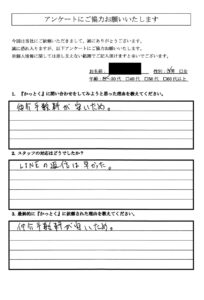 アンケートにご協力お願いいたします
今回は当社にご依頼いただきまして、誠にありがとうございます。
誠に恐れ入りますが、以下アンケートにご協力お願いいたします。
依頼人情報に関しては差し支えない範囲でご記入頂けますと幸いでございます。
お名前
性別 男性 □女
年齢 20・30代 □40代 □50代 □60代以上
1. 『かっとく』に問い合わせをしてみようと思った理由を教えてください。
仲介手数料が安いため。
2. スタッフの対応はどうでしたか?
LINEの返信は早かった。
3. 最終的に『かっとく』に依頼された理由を教えてください。
仲介手数料が安いため。